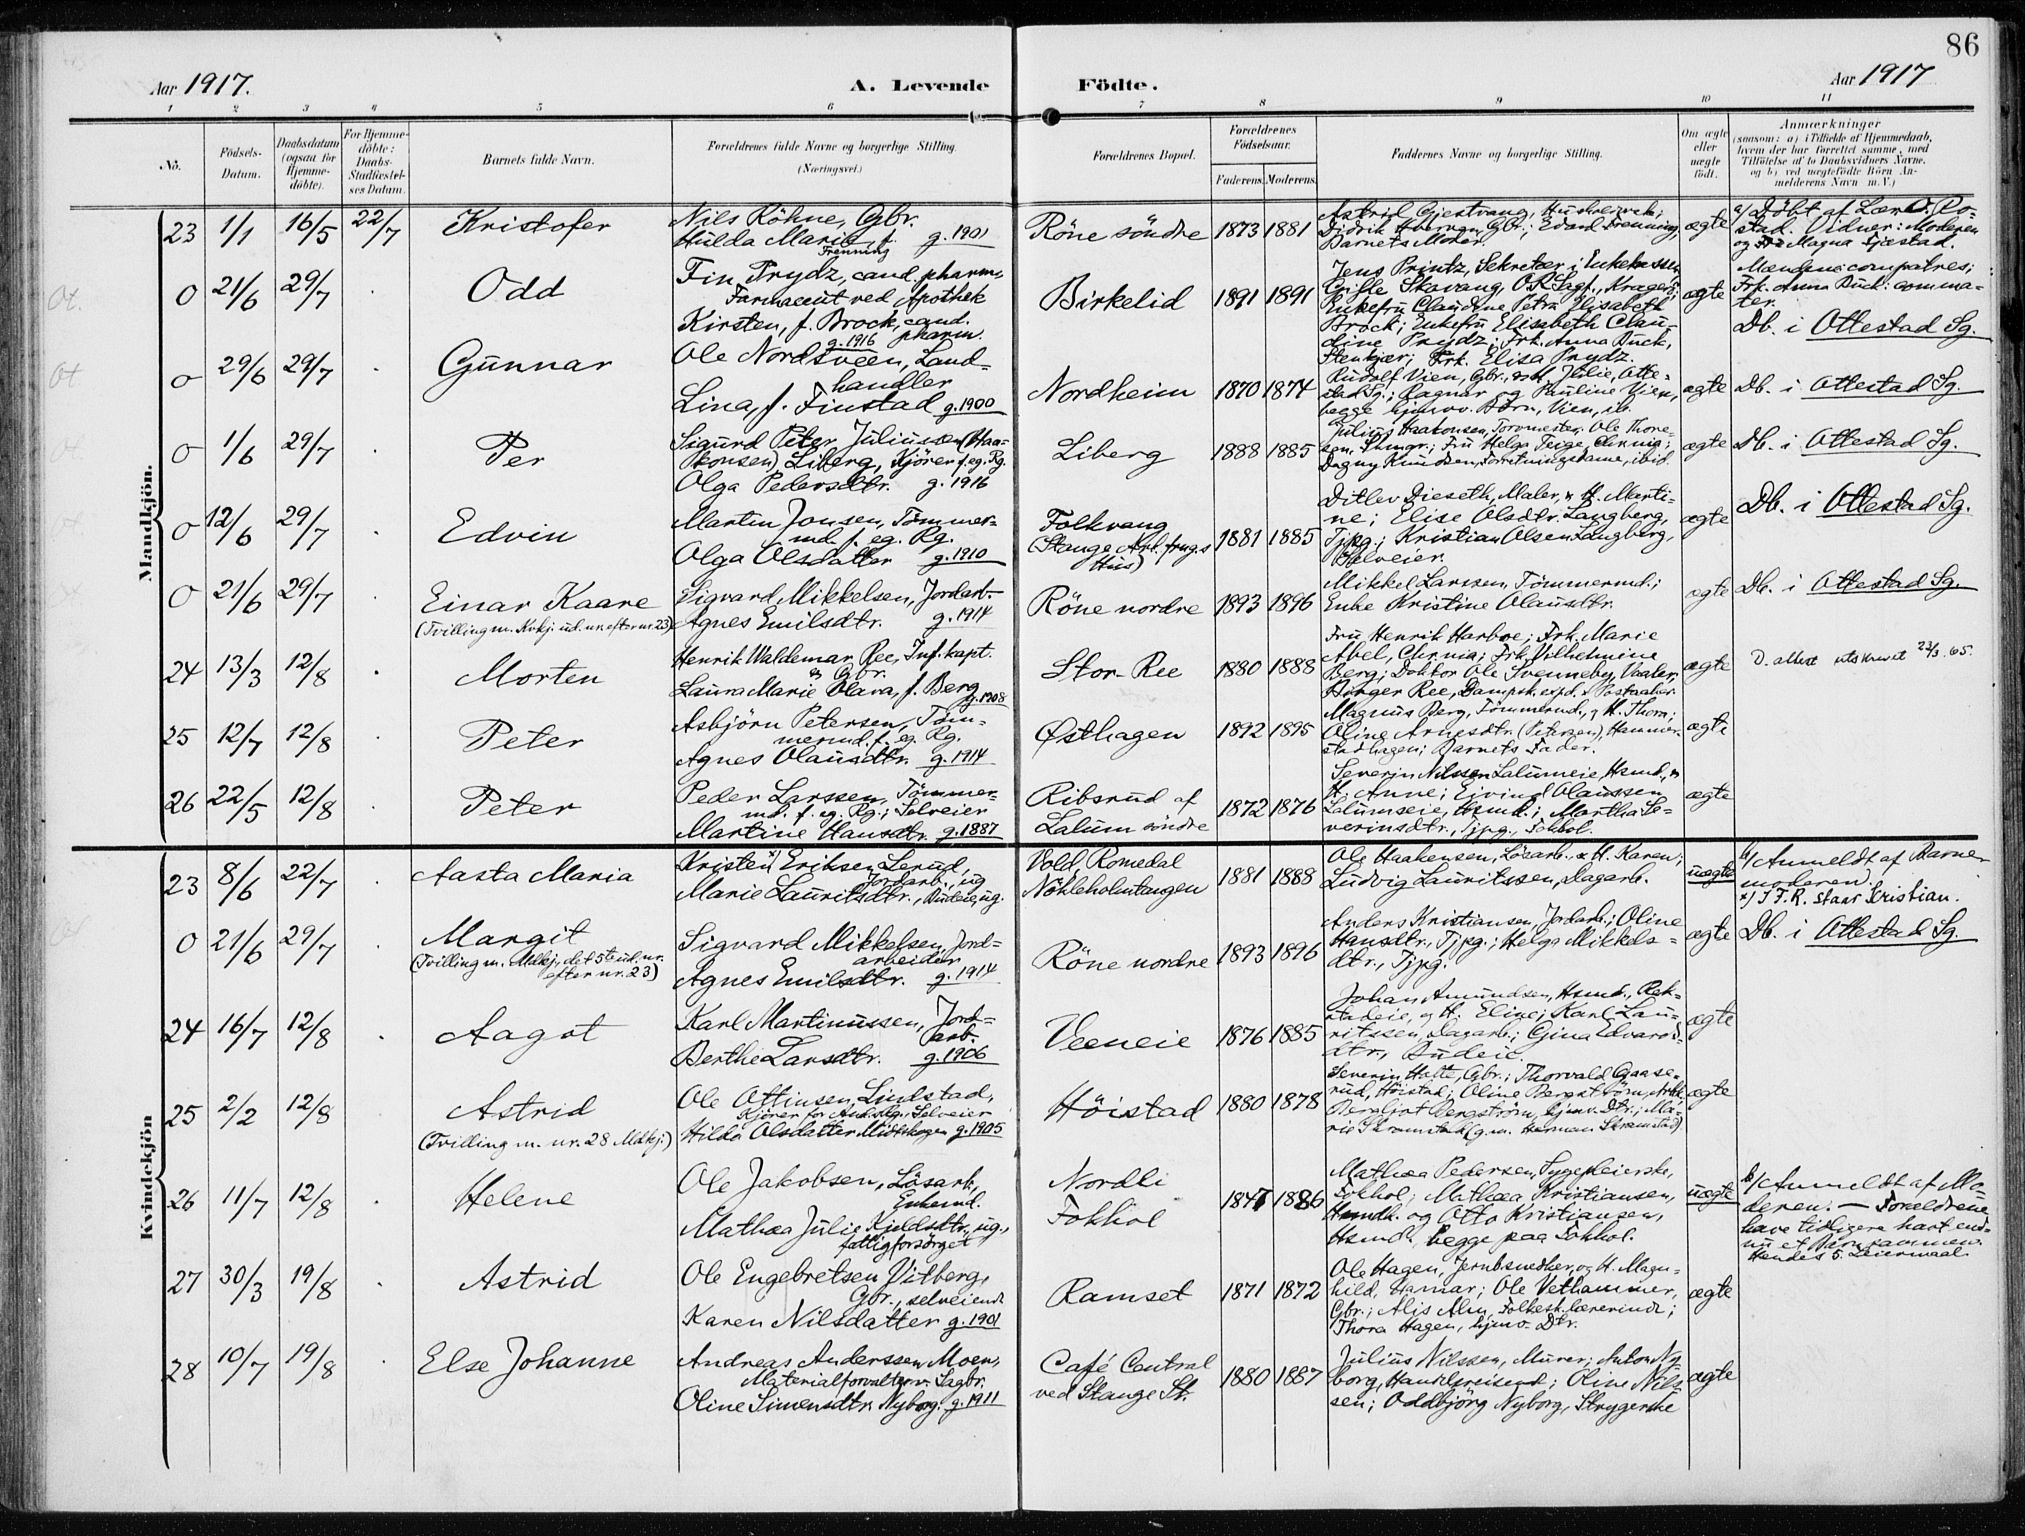 86
Aar 1917.
A. Levende
Födte.
Aar 1917
1 2 3 4 5 6 7 8 9 10 11
No.
Födsels-Datum.
Daabsdatum (ogsaa for Hjemme-döbte).
For Hjemme-döbte: Daabs-Stadfæstel-ses Datum.
Barnets fulde Navn.
Forældrenes fulde Navne og borgerlige Stilling. (Næringsvei.)
Forældrenes Bopæl.
Forældrenes Födselsaar.
Faderens. Moderens.
Faddernes Navne og borgerlige Stilling.
Om ægte eller uægte födt.
Anmærkninger
(saasom: a) i Tilfælde af Hjemmedaab, hvem der har forrettet samme, med Tilföielse af to Daabsvidners Navne, og b) ved uægtefödte Börn An-melderens Navn m. V.)
Mandkjön.
23 1/1 16/5 22/7 Kristofer
Nils Röhne, Gbr.
Hulda Marie f. Frenning g. 1901
Röne söndre 1873 1881
Astrid Gjestvang, Husholderske;
Gbr.; Edvard Frenning,
Barnets Moder
ægte
a/ Döbt af Lær. O. Ro-
stad. Vidner: Moderen
og Fru Magna Sjøstad.
Ot.
0 21/6 29/7 Odd
Fin Prydz, cand. pharm.
Farmaceut ved Apothek
Kirsten, f. Brock, cand. pharm.
g. 1916
Birkelid 1891 1891
Jens Printz, Sekretær i Enkekassen
Skavang, O.R.Sagf., Kragerö;
Enkefru Claudine Petra Elisabeth
Brock; Enkefru Elisabeth Clau-
dine Prydz; Frk. Anna Buck,
Stenkjær; Frk. Elisa Prydz.
ægte
Mændene compatres;
Frk. Anna Buck: comma-
ter.
Db. i Ottestad Sg.
Ot
0 29/6 29/7 Gunnar
Ole Nordsveen, Land-
handler
Lina, f. Finstad g. 1900
Nordheim 1870 1874
Rudolf Vien, Gbr., & H. Julie, Otte-
stad Sg.; Ragnar og Pauline Vien,
begge hjemv. Börn, Vien, ib.
ægte
Db. i Ottestad Sg.
Ot
0 1/6 29/7 Per
Sigurd Peter Juliussen (Haa-
konsen) Liberg, Kjörer f. eg. Rg.
Olga Pedersdtr. g. 1916
Liberg 1888 1885
Julius Haakonsen, Torvmester; Ole Thore-
sen, Fru Helga Teige, Chr.nia;
Dagny Knudsen, Forretningsdame, ibid.
ægte
Db. i Ottestad Sg.
Ot
0 12/6 29/7 Edvin
Martin Jonsen, Tömmer-
md. f. eg. Rg.
Olga Olsdatter g. 1910
Folkvang
(Stange Arb. frngs Hus)
1881 1885
Ditlev Dieseth, Maler, & H. Marti-
ne; Elise Olsdtr. Langberg,
Tjpg.; Kristian Olsen Langberg,
Selveier.
ægte
Db. i Ottestad Sg.
Ot
0 21/6 29/7 Einar Kaare
(Tvilling m. Kvkj. ud. nr. efter nr. 23)
Sigvard Mikkelsen, Jordarb.
Agnes Emilsdtr. g. 1914
Röne nordre 1893 1896
Mikkel Larssen, Tömmermd.;
Enke Kristine Olausdtr.
ægte
Db. i Ottestad Sg.
24 13/3 12/8 Morten
Henrik Waldemar Ree, Inf. kapt.
& Gbr.
Laura Marie Olava, f. Berg g. 1908
Stor Ree 1880 1888
Fru Henrik Harboe; Frk. Marie
Abel, Chr.nia; Frk. Vilhelmine
Berg; Doktor Ole Svenneby, Vaaler;
Birger Ree, Dampsk. exp. & Postaabner
ægte
D. attest utskrevet 23/3. 65.
25 12/7 12/8 Peter
Asbjörn Petersen, Töm-
mermd. f. eg. Rg.
Agnes Olausdtr. g. 1914
Østhagen 1892 1895
Magnus Berg, Tömmermd., & H. Thora;
Oline Arnesdtr. (Petersen), Hammer-
stadhagen; Barnets Fader.
ægte
26 22/5 12/8 Peter
Peder Larssen, Tömmer-
md. f. eg. Rg.; Selveier
Martine Hansdtr. g. 1887
Ribsrud af
Lalum söndre
1872 1876
Severin Nilssen Lalumeie, Hsmd., &
H. Anne; Eivind Olaussen
Lalumseie, Hsmd.; Martha Se-
verinsdtr., Tjpg., Fokhol.
ægte
Kvindekjön
23 8/6 22/7 Aasta Maria
Kristen x) Eriksen Lerud,
Jordarb., ug
Marie Lauritsdtr., Budeie, ug.
Vold, Romedal
Nökleholmtangen
1881 1888
Ole Haakensen, Lösarb., & H. Karen;
Ludvig Lauritssen, Dagarb.
uægte
b/ Anmeldt af Barne-
moderen.
x) I F. R. staar Kristian.
Ot
0 21/6 29/7 Margit
(Tvilling m. Mdkj., det 5te ud. nr. efter nr. 23)
Sigvard Mikkelsen, Jord-
arbeider
Agnes Emilsdtr. g. 1914
Röne nordre 1893 1896
Anders Kristiansen, Jordarb.; Oline
Hansdtr., Tjpg.; Helga Mikkels-
dtr., Tjpg.
ægte
Db. i Ottestad Sg.
24 16/7 12/8 Aagot
Karl Martinussen, Jord-
arb.
Berthe Larsdtr. g. 1906
Veeneie 1876 1885
Johan Amundsen, Hsmd., Rek-
stadeie, & H. Eline; Karl Lau-
ritssen, Dagarb.; Gina Edvards-
dtr., Budeie.
ægte
25 2/2 12/8 Astrid
(Tvilling m. nr. 28 Mdkj.)
Ole Ottinsen Lindstad,
Kjörer for And. Rg., Selveier
Hilda Olsdatter Midtskogen g. 1905
Höistad 1880 1878
Severin Holte, Gbr.; Thorvald Gaase-
rud, Höistad; Oline Bergström,
Bergljot Bergström, hjemv. Dtr.; Ma-
rie Skramstad (g. m. Herman Skramstad)
ægte
26 11/7 12/8 Helene
Ole Jakobsen, Lösarb.,
Enkemd.
Mathea Julie Kjeldsdtr., ug.,
fattigforsörget
Nordli
Fokhol
1847 1886
Mathea Pedersen, Sygepleierske,
Fokhol; Mathea Kristiansen,
Hsmdk. og Otto Kristiansen,
Hsmd., begge paa Fokhol.
uægte
b/ Anmeldt af Mo-
deren. — Forældrene
have tidligere havt end-
nu et Barn sammen.
Hendes 5. Leiermaal.
27 30/3 19/8 Astrid
Ole Engebretsen Vitberg,
Gbr., selveiende
Karen Nilsdatter g. 1901
Ramset 1871 1872
Ole Hagen, Jernb.smed, og H. Magn-
hild, Hamar; Ole Vethammer,
Gbr.; Alis Alm, Folkesk.lærerinde;
Thora Hagen, hjemv. Dtr.
ægte
28 10/7 19/8 Else Johanne
Andreas Anderssen Moen,
Materialforvalter v. Sagbr.
Oline Simensdtr. Nyborg. g. 1911
Café Central
ved Stange St.
1880 1887
Julius Nilssen, Murer; Anton Ny-
borg, Handelsreisend; Oline Nils-
sen; Oddbjörg Nyborg, Strygerske
ægte